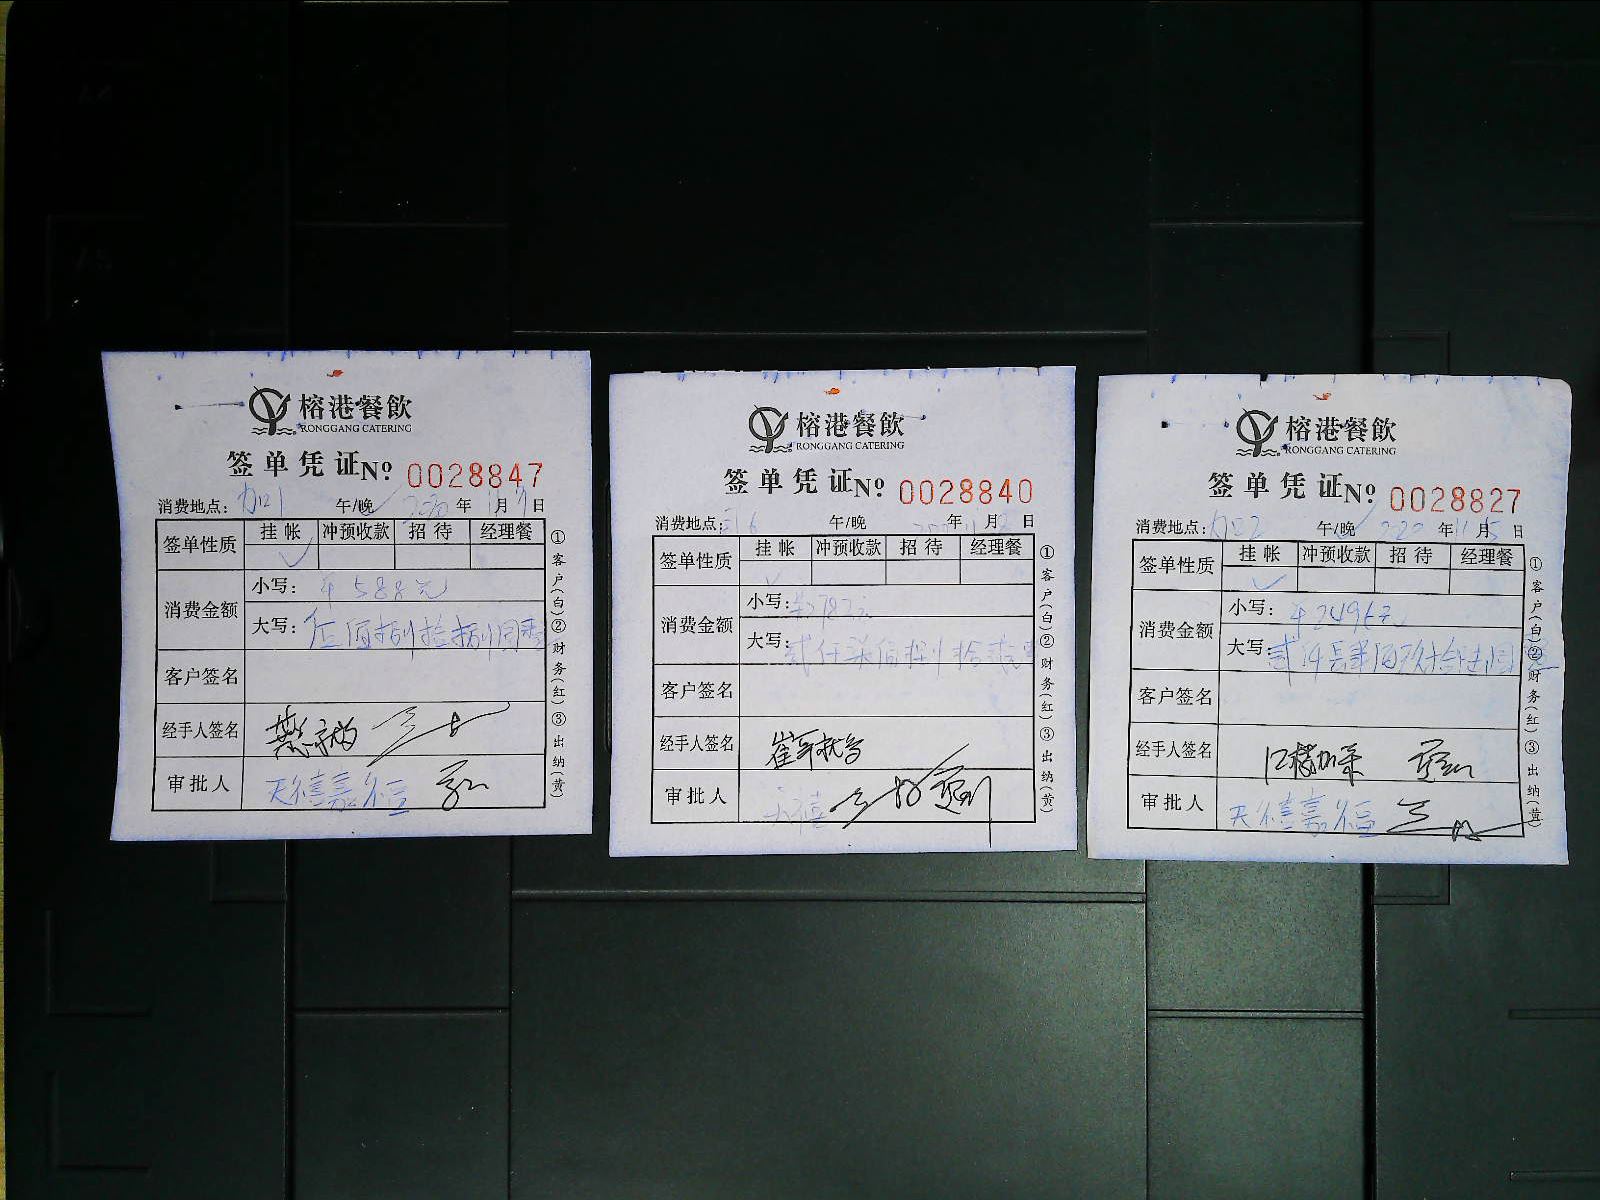 榕港餐飲
RONGGANG CATERING
签单凭证 No 0028847
消费地点: 加1 午/晚 年 11月 日
签单性质 挂帐 冲预收款 招待 经理餐
消费金额
小写: ¥588元
大写: 伍佰捌拾捌圆
客户签名
经手人签名
审批人 天禧嘉福
①客户(白)②财务(红)③出纳(黄)
榕港餐飲
RONGGANG CATERING
签单凭证 No 0028840
消费地点: 午/晚 年 月 日
签单性质 挂帐 冲预收款 招待 经理餐
消费金额
小写:
大写: 贰仟柒佰捌拾
客户签名
经手人签名
审批人 天禧
①客户(白)②财务(红)③出纳(黄)
榕港餐飲
RONGGANG CATERING
签单凭证 No 0028827
消费地点: 午/晚 年 11月 5日
签单性质 挂帐 冲预收款 招待 经理餐
消费金额
小写: ¥2495元
大写: 贰仟肆佰玖拾伍圆
客户签名
经手人签名
审批人 天禧嘉福
①客户(白)②财务(红)③出纳(黄)